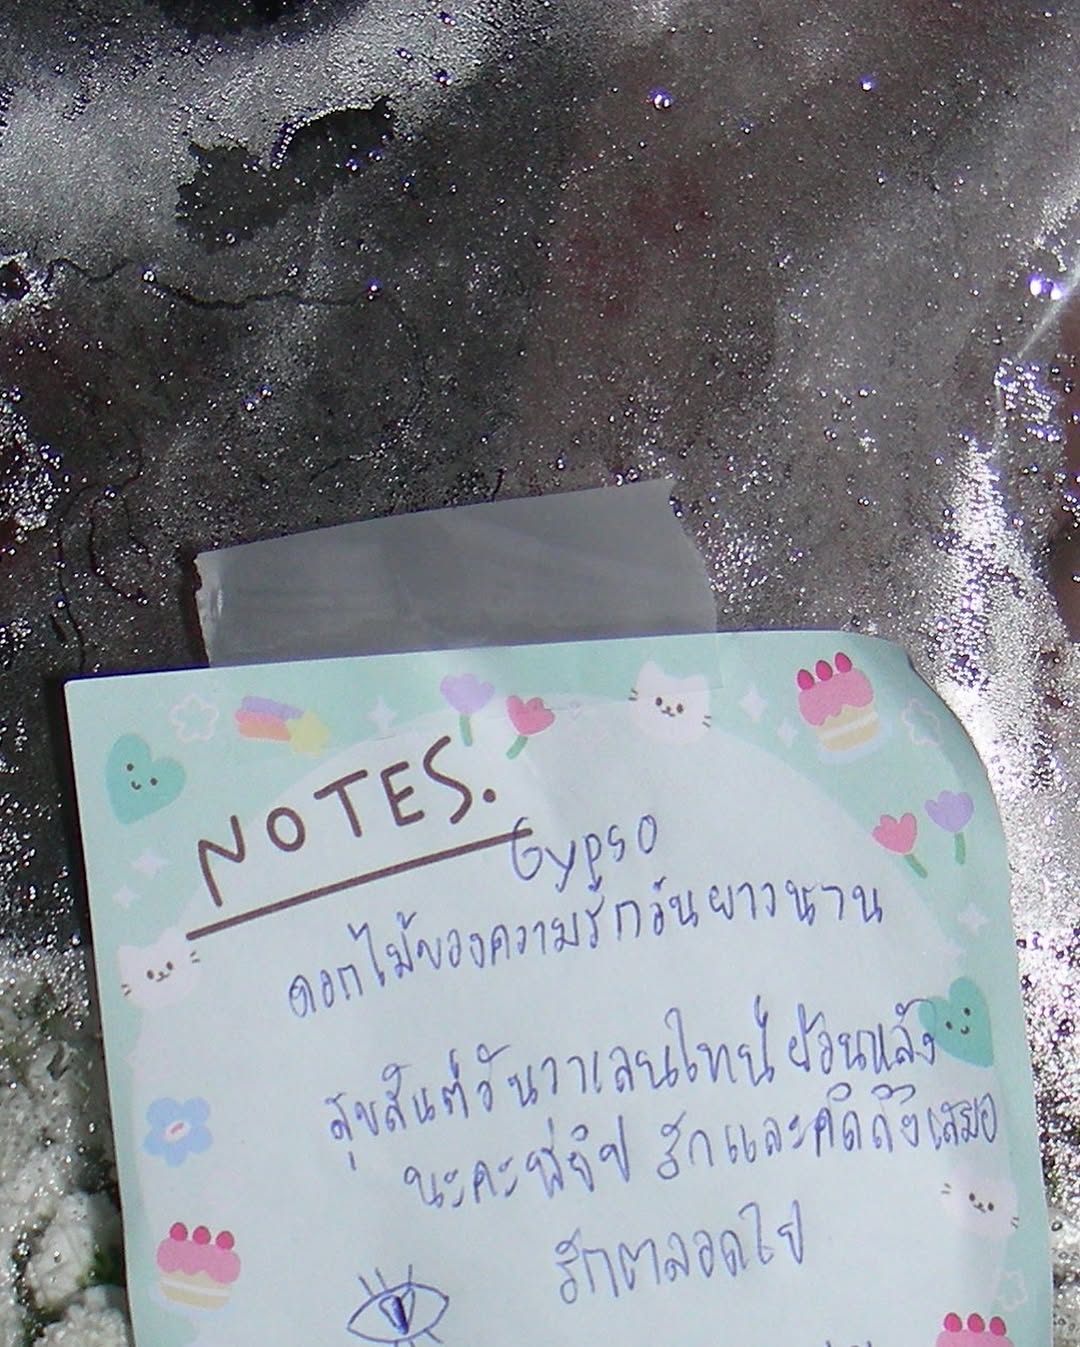 NOTES.
Gypso
ดอกไม้ของความรักอันยาวนาน
สุขสันต์วันวาเลนไทน์ย้อนหลัง
นะคะพี่ยิป รักและคิดถึงเสมอ
รักตลอดไป